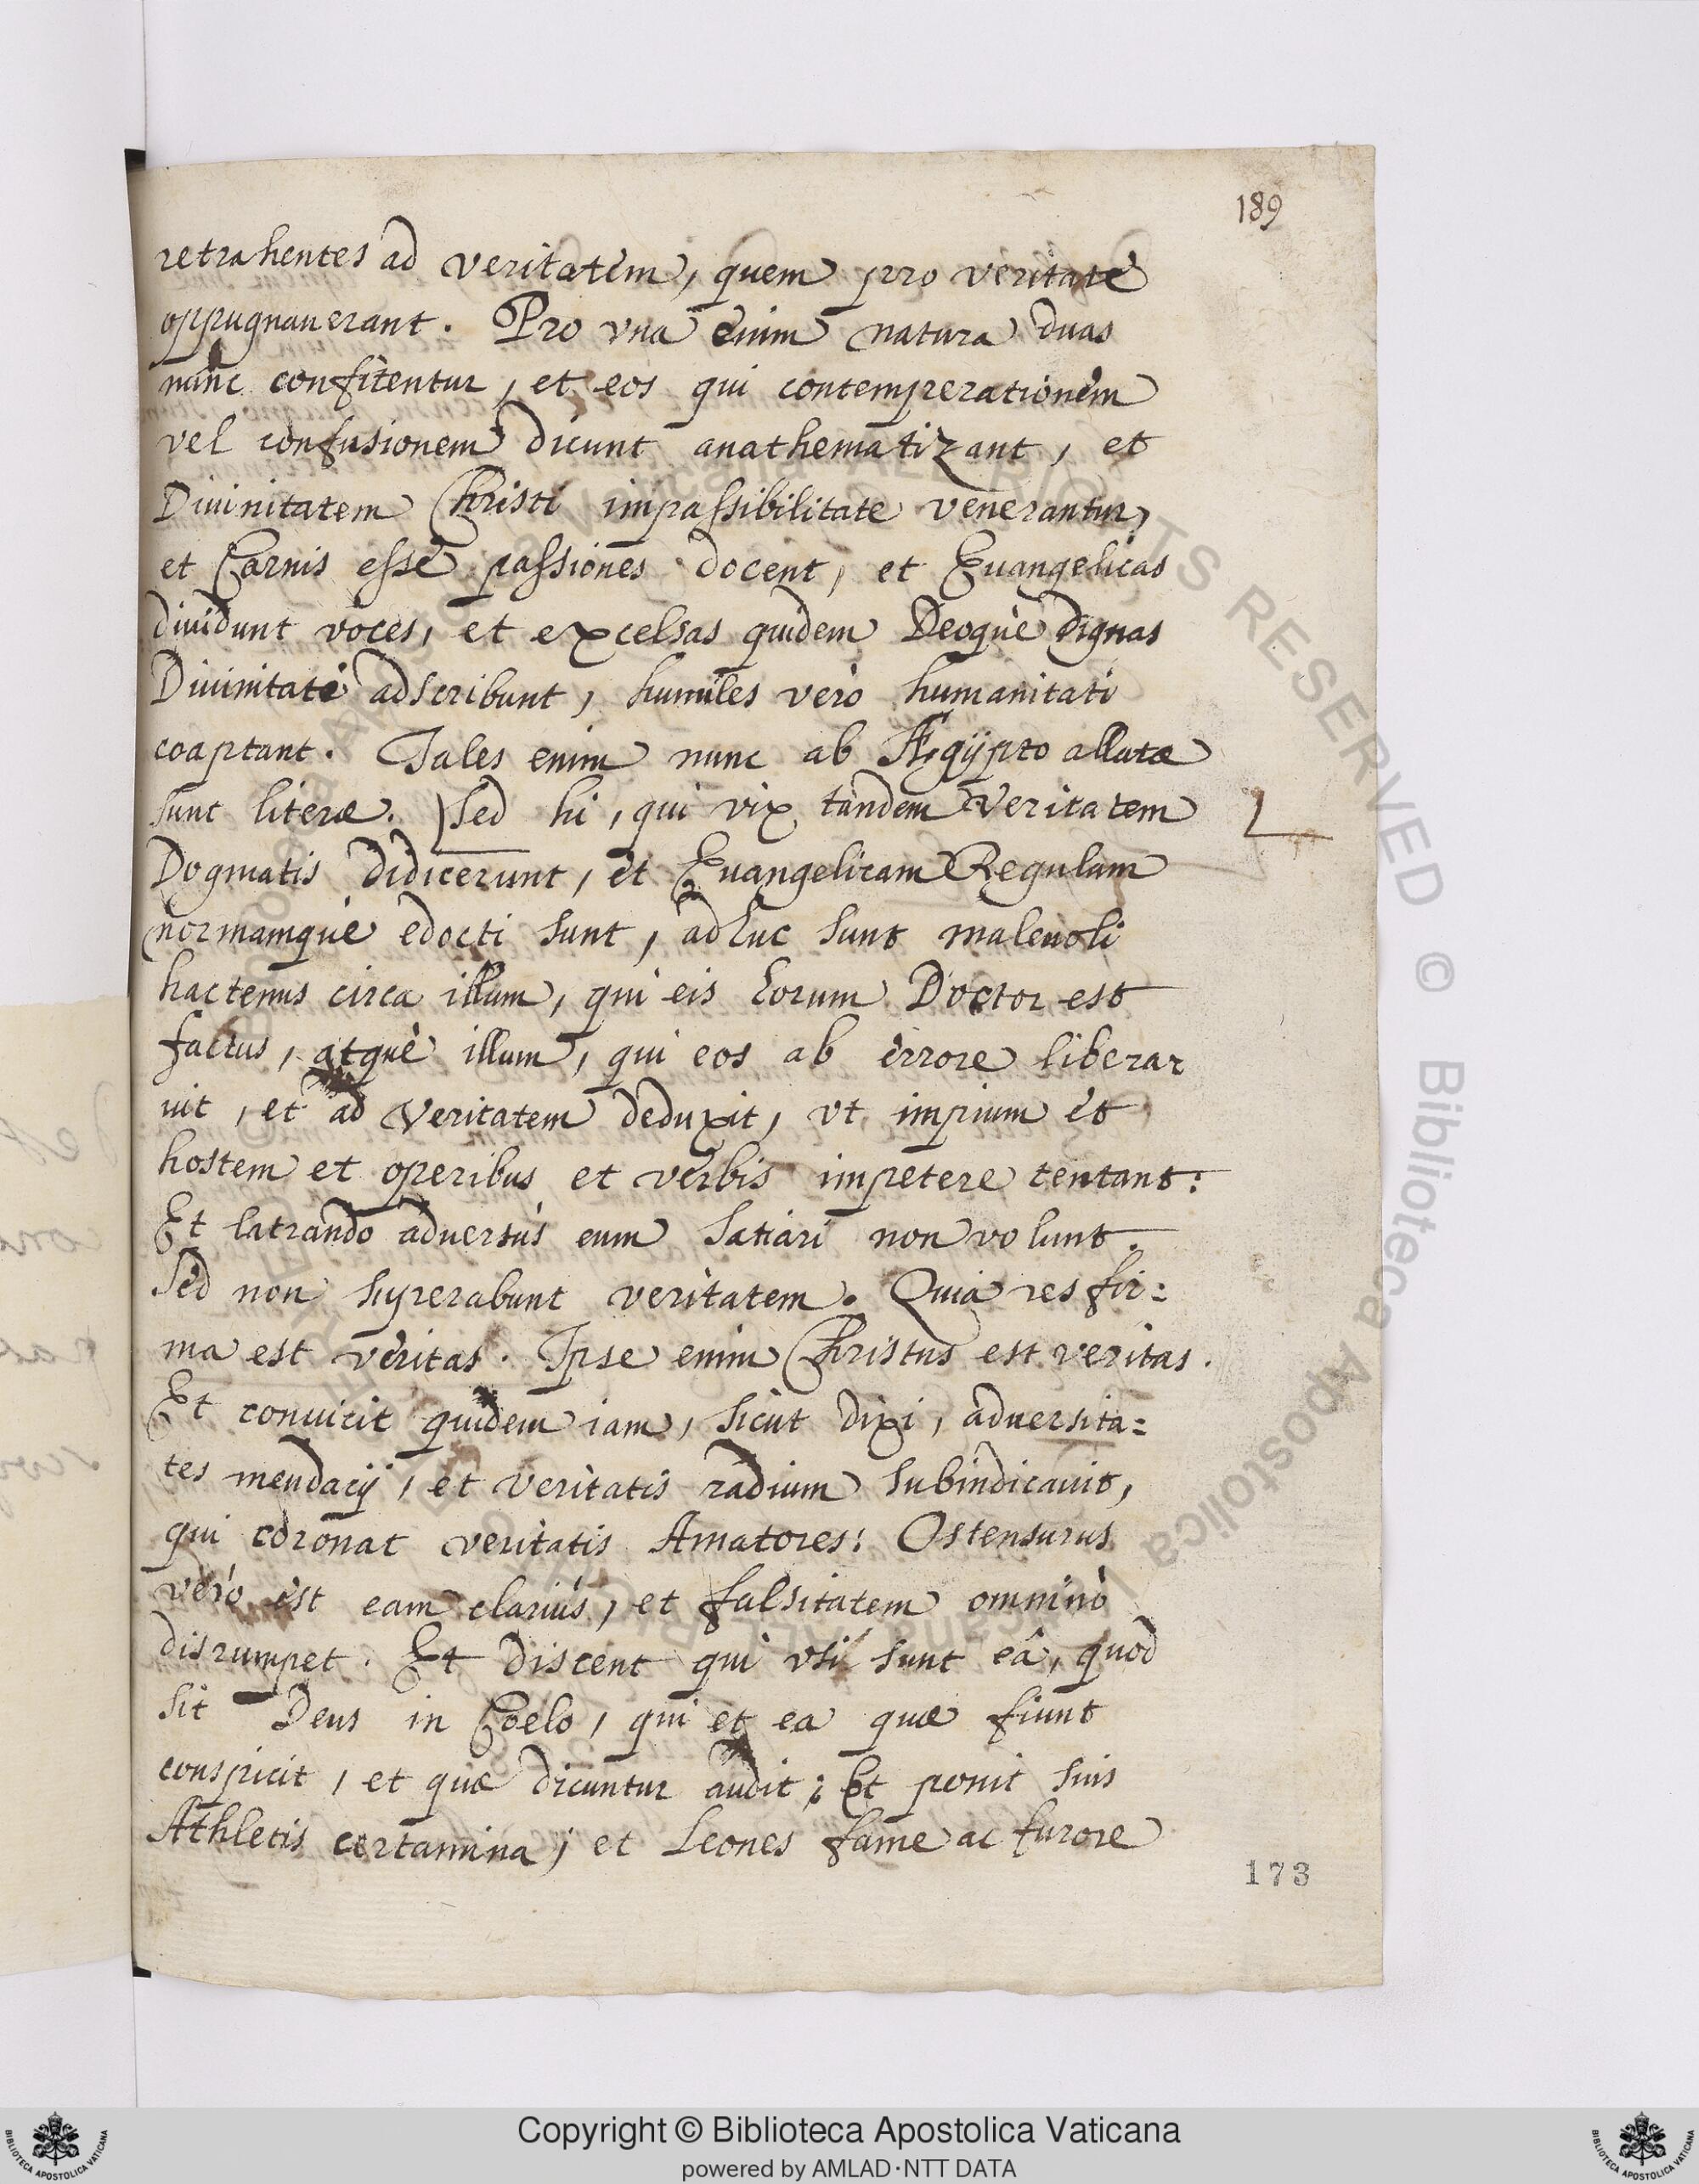 189
retrahentes ad veritatem, quem pro veritate
oppugnauerant. Pro vna enim natura duas
nunc confitentur, et eos qui contemperationem
vel confusionem dicunt anathematizant, et
Diuinitatem Christi impassibilitate venerantur,
et Carnis esse passiones docent, et Euangelicas
diuidunt voces, et excelsas quidem Deoque dignas
Diuinitati adscribunt, humiles vero humanitati
coaptant. Tales enim nunc ab Ægÿpto allatæ
sunt literæ. Sed hi, qui vix tandem Veritatem
Dogmatis didicerunt, et Euangelicam Regulam
normamque edocti sunt, adhuc sunt maleuoli
hactenus circa illum, qui eis horum Doctor est
factus, atque illum, qui eos ab errore libera-
uit, et ad Veritatem deduxit, vt impium et
hostem et operibus et verbis impetere tentant:
Et latrando aduersus eum satiari non volunt.
Sed non superabunt veritatem. Quia res fir:
ma est veritas. Ipse enim Christus est veritas.
Et conuicit quidem iam, sicut dixi, aduersita:
tes mendacij, et veritatis radium subindicauit,
qui coronat veritatis Amatores: Ostensurus
verò est eam clariùs, et falsitatem omninò
disrumpet. Et discent qui vsi sunt eâ, quod
sit Deus in Coelo, qui et ea quæ fiunt
conspicit, et quæ dicuntur audit; Et ponit suis
Athletis certamina; et Leones fame ac furore
173
Copyright © Biblioteca Apostolica Vaticana
powered by AMLAD·NTT DATA